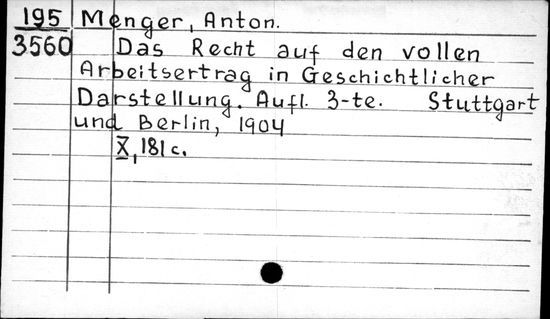 195 Menger, Anton.
3560 Das Recht auf den vollen
Arbeitsertrag in Geschichtlicher
Darstellung. Aufl. 3-te. Stuttgart
und Berlin, 1904
X, 181 c.